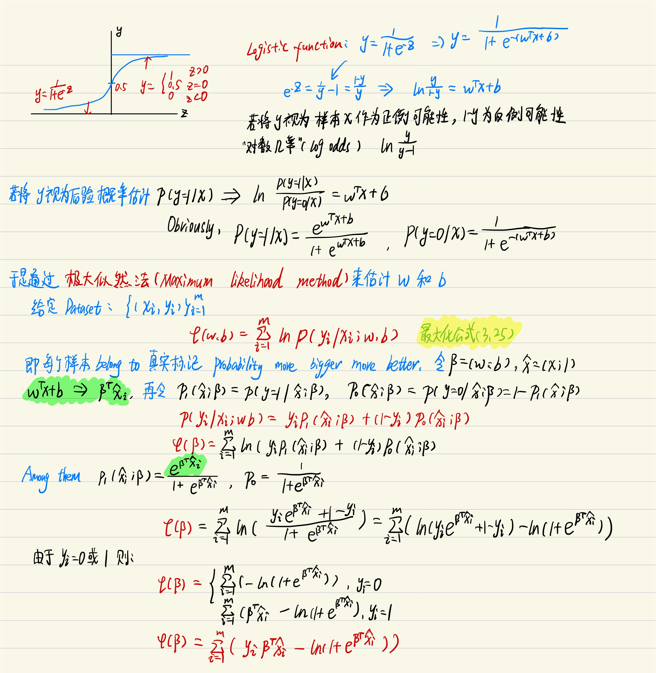 y
Logistic function: y = 1/(1+e^-z) ⇒ y = 1/(1+e^-(wᵀx+b))
y = 1/(1+e^-z)
0.5
y = { 1 z>0
0.5 z=0
0 z<0
z
e^-z = 1/y − 1 = (1-y)/y ⇒ ln y/(1-y) = wᵀx+b
若将 y 视为 样本 x 作为正例可能性, 1-y 为反例可能性
"对数几率"(log odds) ln y/(y-1)
若将 y 视为后验概率估计 P(y=1|x) ⇒ ln P(y=1|x)/P(y=0|x) = wᵀx+b
Obviously, P(y=1|x) = e^(wᵀx+b)/(1+e^(wᵀx+b)) , P(y=0|x) = 1/(1+e^-(wᵀx+b))
于是通过 极大似然法 (Maximum likelihood method) 来估计 w 和 b
给定 Dataset: {(xᵢ, yᵢ)}ᵢ₌₁^m
ℓ(w.b) = Σᵢ₌₁^m ln P(yᵢ|xᵢ; w.b) 最大化公式(3.25)
即每个样本 belong to 真实标记 probability more bigger more better. 令 β=(w;b), x̂=(x;1)
wᵀx+b ⇒ βᵀx̂ᵢ, 再令 P₁(x̂;β) = P(y=1|x̂;β), P₀(x̂;β) = P(y=0|x̂;β) = 1-P₁(x̂;β)
P(yᵢ|xᵢ;w b) = yᵢP₁(x̂ᵢ;β) + (1-yᵢ)P₀(x̂ᵢ;β)
ℓ(β) = Σᵢ₌₁^m ln( yᵢP₁(x̂ᵢ;β) + (1-yᵢ)P₀(x̂ᵢ;β)
Among them P₁(x̂ᵢ;β) = e^(βᵀx̂ᵢ)/(1+e^(βᵀx̂ᵢ)) , P₀ = 1/(1+e^(βᵀx̂ᵢ))
ℓ(β) = Σᵢ₌₁^m ln( (yᵢe^(βᵀx̂ᵢ)+1-yᵢ)/(1+e^(βᵀx̂ᵢ)) ) = Σᵢ₌₁^m (ln(yᵢe^(βᵀx̂ᵢ)+1-yᵢ) - ln(1+e^(βᵀx̂ᵢ)))
由于 yᵢ=0 或 1 则:
ℓ(β) = { Σᵢ₌₁^m (-ln(1+e^(βᵀx̂ᵢ))), yᵢ=0
Σᵢ₌₁^m (βᵀx̂ᵢ - ln(1+e^(βᵀx̂ᵢ)), yᵢ=1
ℓ(β) = Σᵢ₌₁^m ( yᵢβᵀx̂ᵢ - ln(1+e^(βᵀx̂ᵢ)))